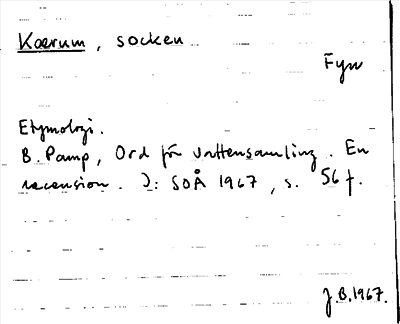 Kærum, socken
Fyn
Etymologi.
B. Pamp, Ord för vattensamling. En
recension. I: SOÅ 1967, s. 56 f.
J.B. 1967.